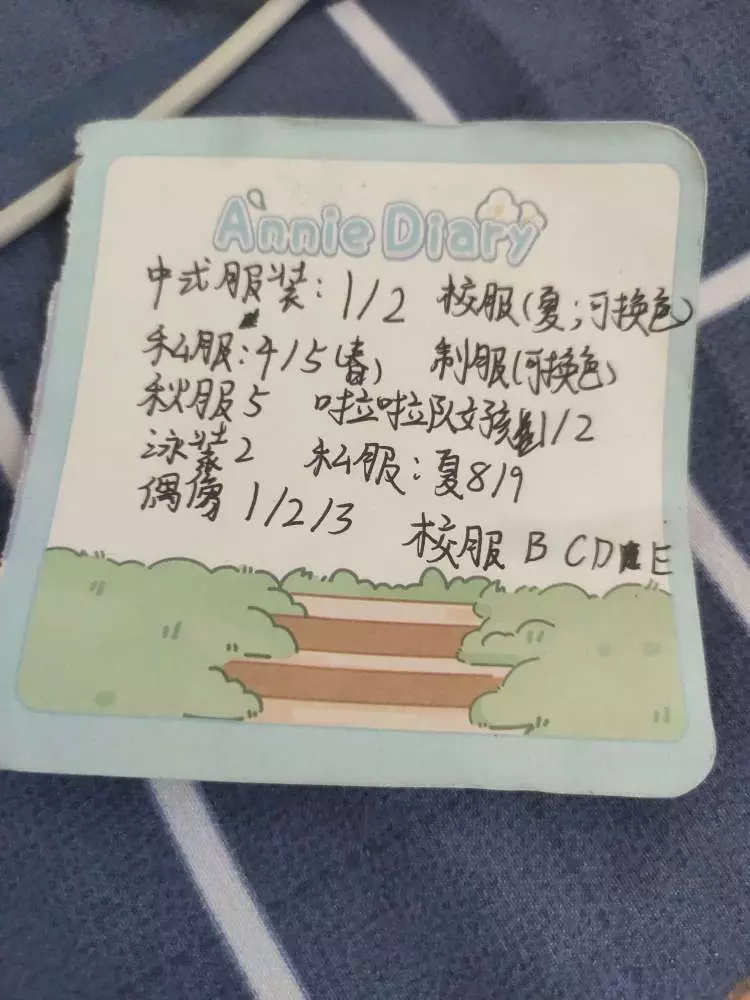 Annie Diary
中式服装：1/2 校服(夏；可换色)
私服：4/5(春) 制服(可换色)
秋服5 啦啦队女孩1/2
泳装2 私服：夏8/9
偶像1/2/3 校服 B C D E